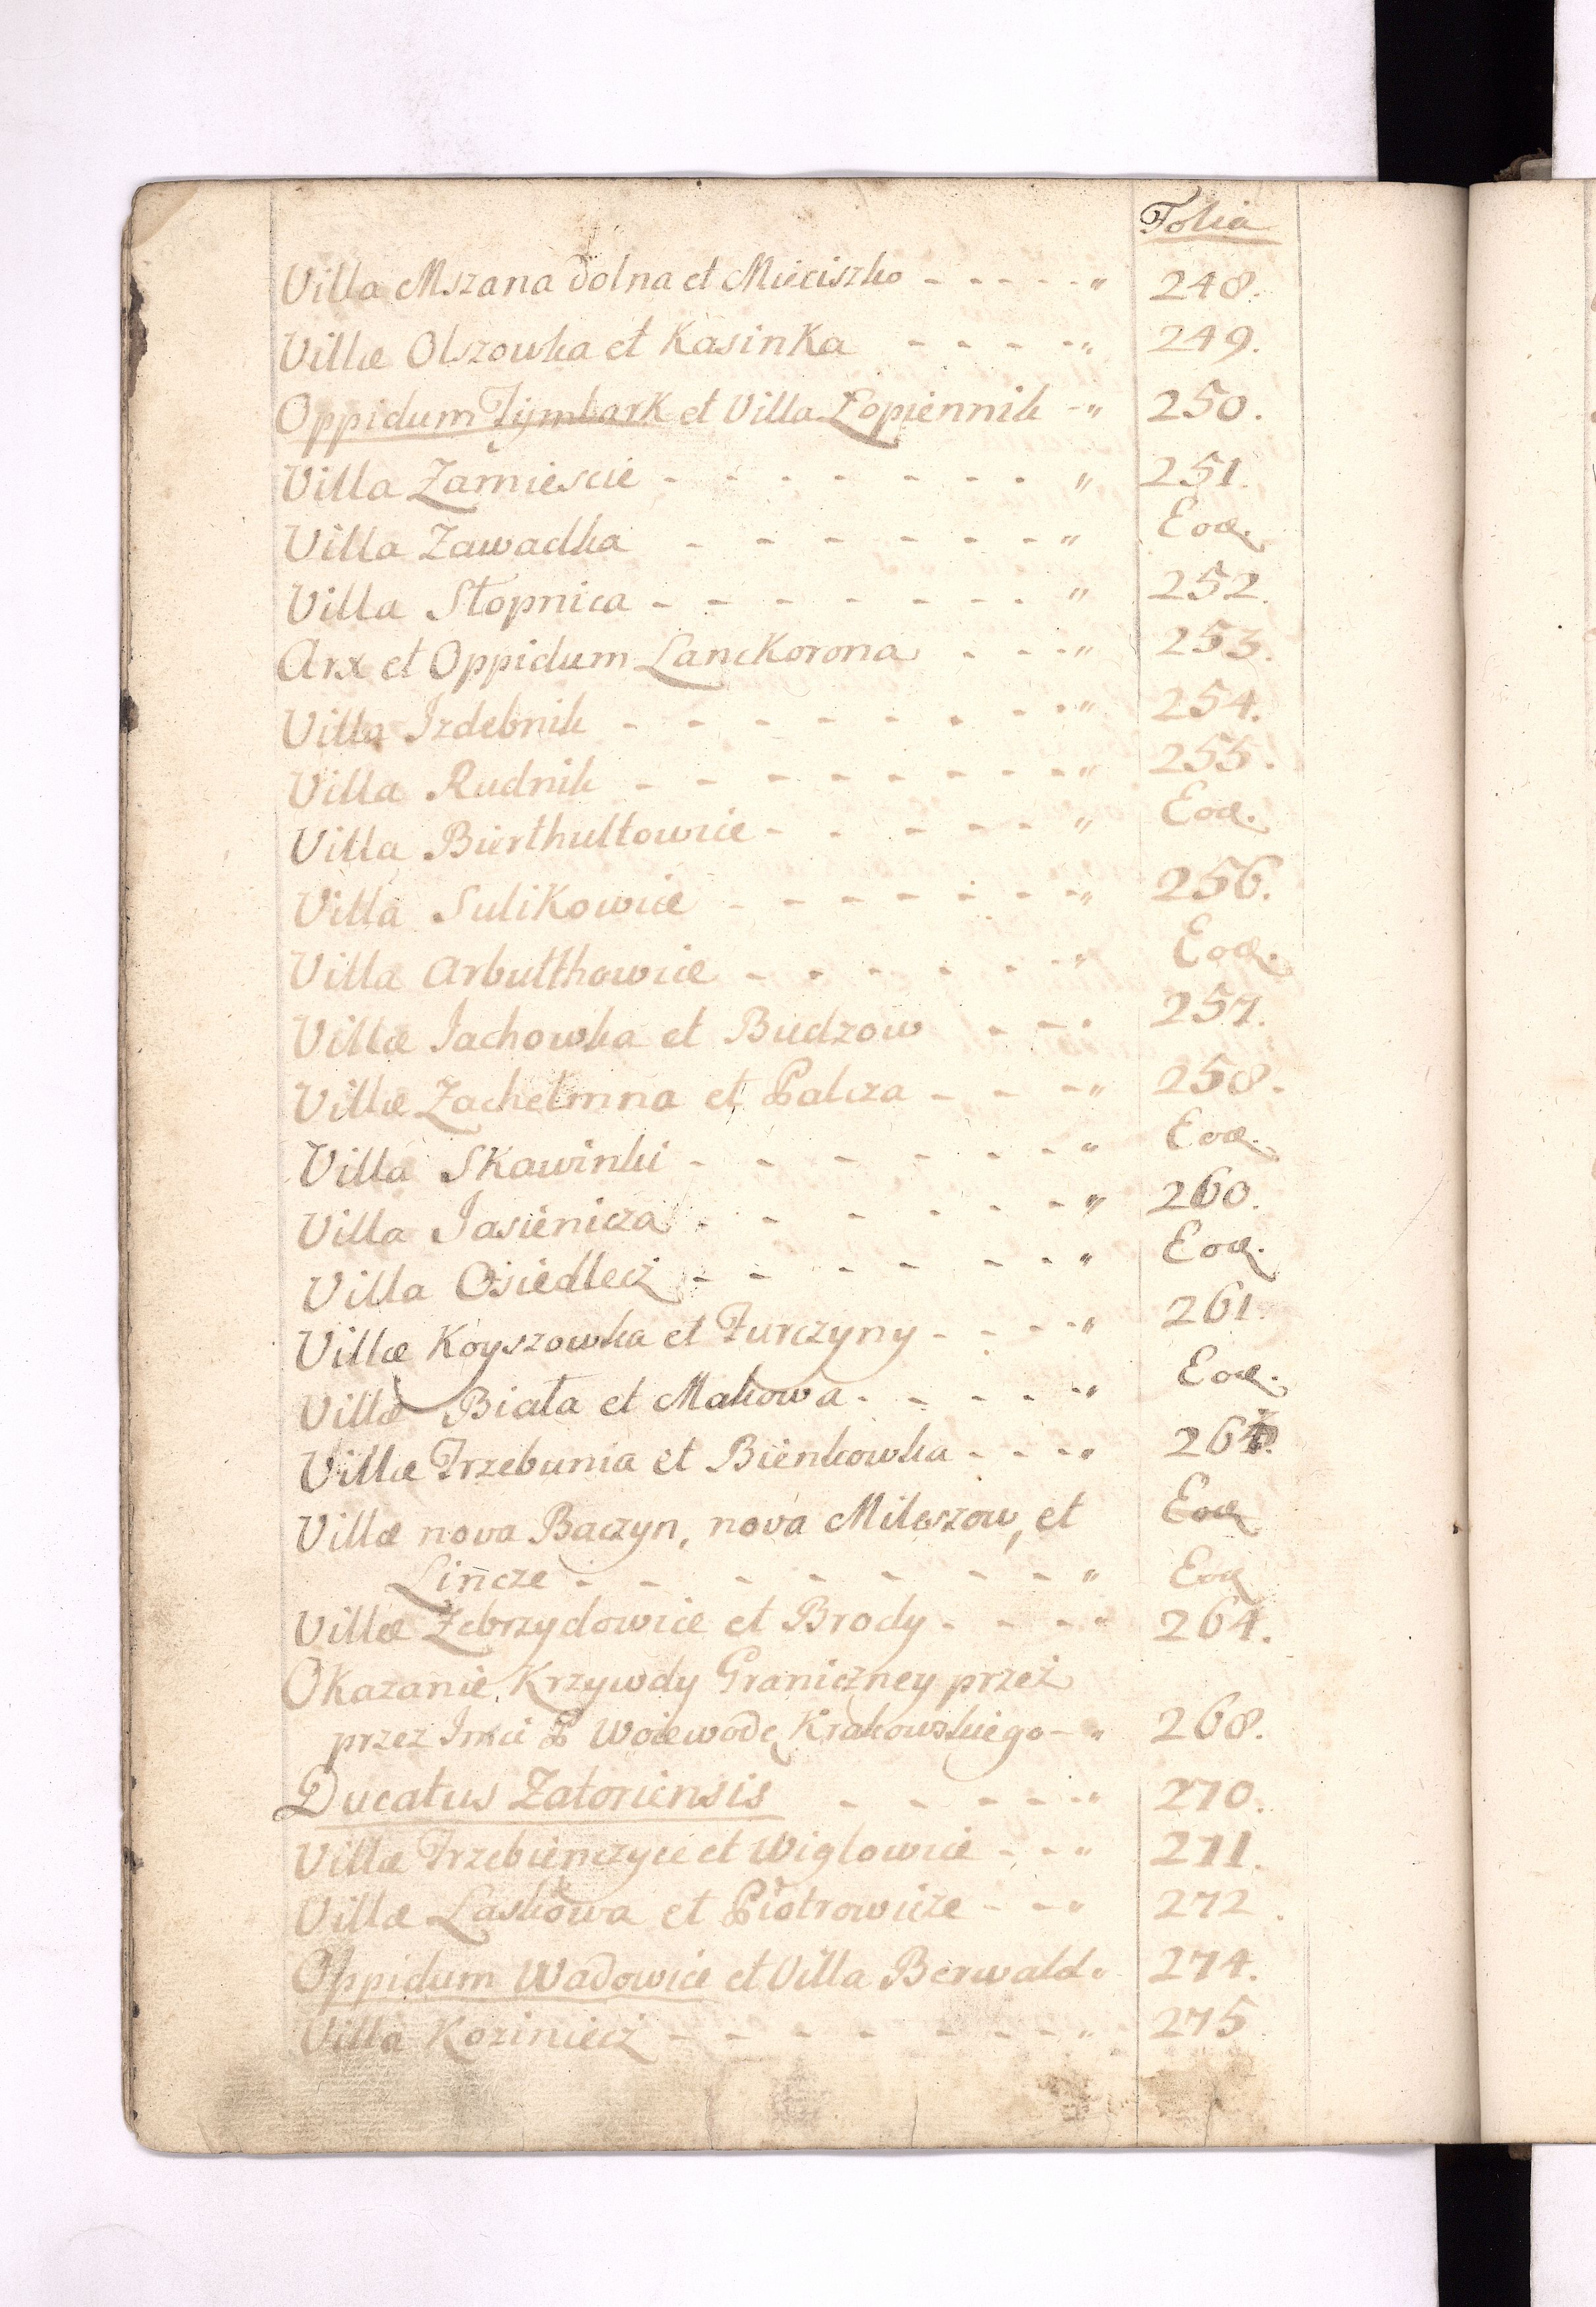 Folia
Villa Mszana dolna et Mieciszko - - - - - " 248.
Villæ Olszowka et Kasinka - - - - - " 249.
Oppidum Tymbark et Villa Łopiennik - " 250.
Villa Zamiescie - - - - - - - " 251.
Villa Zawadka - - - - - - " Eod.
Villa Słopnica - - - - - - - " 252.
Arx et Oppidum Lanckorona - - - " 253.
Villa Izdebnik - - - - - - - - " 254.
Villa Rudnik - - - - - - - - " 255.
Villa Bierthultowice - - - - - " Eod.
Villa Sulikowice - - - - - - - " 256.
Villa Arbulthowice - - - - - - " Eod.
Villæ Jachowka et Budzow - - - 257.
Villæ Zachełmna et Palcza - - - " 258.
Villa Skawinki - - - - - - - " Eod.
Villa Jasienicza - - - - - - " 260.
Villa Osiedlecz - - - - - - - " Eod.
Villæ Koyszowka et Jurczyny - - - - " 261.
Villæ Biała et Makowa - - - - - " Eod.
Villæ Trzebunia et Bienkowka - - - "
Villæ nova Baczyn, nova Mileszow, et Eod
Lińcze - - - - - - - - " Eod
Villæ Zebrzydowice et Brody - - - - " 264.
Okazanie Krzywdy Graniczney przez
przez Jmci P Woiewodę Krakowskiego - " 268.
Ducatus Zatoriensis - - - - - " 270.
Villæ Trzebienczyce et Wiglowice - - - " 271.
Villæ Laskowa et Piotrowicze - - - " 272.
Oppidum Wadowice et Villa Berwald " 274.
Villa Koziniecz - - - - - - - - " 275